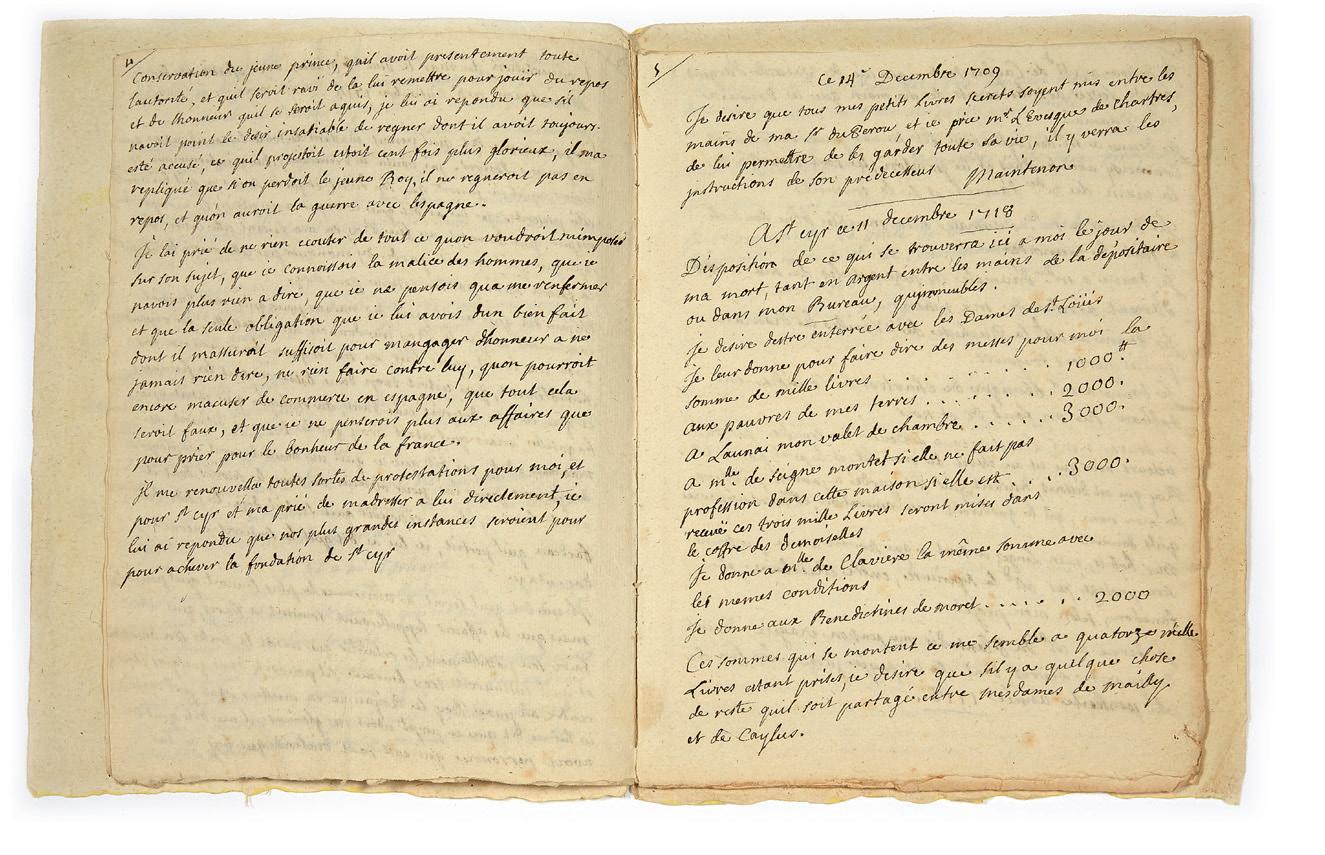 4
Conservation du jeune prince, quil avoit presentement toute
lautorité, et quil seroit ravi de la lui remettre pour jouir du repos
et de lhonneur quil se seroit aquis, je lui ai repondu que sil
navoit point le desir insatiable de regner dont il avoit toujours
esté accusé, ce quil projettoit estoit cent fois plus glorieux, il ma
repliqué que si on perdoit le jeune Roy, il ne regneroit pas en
repos, et quon auroit la guerre avec lespagne.
Je lai prié de ne rien ecouter de tout ce quon voudroit mimposer
sur son sujet, que ie connoissois la malice des hommes, que ie
navois plus rien a dire, que ie ne pensois qua me renfermer
et que la seule obligation que ie lui avois dun bien fait
dont il massuroit suffisoit pour mangager dhonneur a ne
jamais rien dire, ne rien faire contre luy, quon pourroit
encore macuser de commerce en espagne, que tout cela
seroit faux, et que ie ne penserois plus aux affaires que
pour prier pour le bonheur de la france.
il me renouvella toutes sortes de protestations pour moi, et
pour st cyr et ma prié de madresser a lui directement, ie
lui ai repondu que nos plus grandes instances seroient pour
pour achever la fondation de st cyr
5
Ce 14e Decembre 1709
Je desire que tous mes petits Livres secrets soyent mis entre les
mains de ma Sr du Perou et ie prie mr LEvesque de chartres,
de lui permettre de les garder toute sa vie, il y verra les
instructions de son predecesseus Maintenon
A St cyr ce 11 decembre 1718
Disposition de ce qui se trouverra ici a moi le jour de
ma mort, tant en argent entre les mains de la dépositaire
ou dans mon Bureau, quimmeubles.
je desire destre enterrée avec les Dames de st Loüis
je leur donne pour faire dire des messes pour moi la
somme de mille livres . . . . . . . . 1000 ₶
aux pauvres de mes terres . . . . . . . . 2000.
a Launai mon valet de chambre . . . . . . 3000.
a mlle de seigne montet si elle ne fait pas
profession dans cette maison si elle est . . . . 3000.
receuë ces trois mille Livres seront mises dans
le coffre des demoiselles
Je donne a mlle de Claviere la même somme avec
les memes conditions
je donne aux Benedictines de moret . . . . . . . 2000
Ces sommes qui se montent ce me semble a quatorze mille
Livres estant prises, ie desire que sil y a quelque chose
de reste quil soit partagé entre mesdames de mailly
et de Caylus.